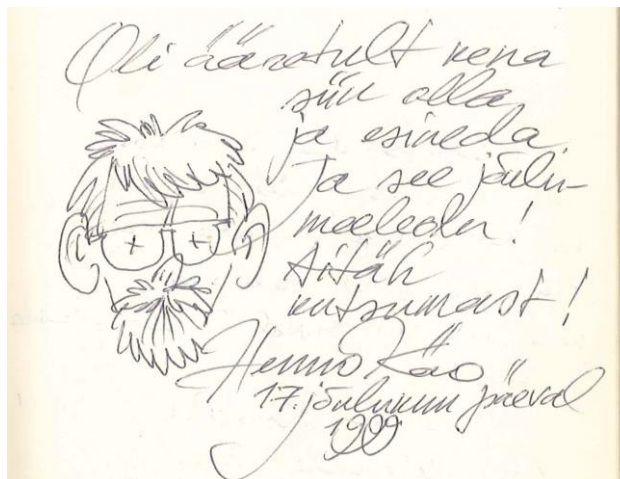 Oli ääretult kena
siin olla
ja esineda.
Ja see jõulu-
meeleolu!
Aitäh
kutsumast!
Henno Käo
17. jõulukuu päeval
1999